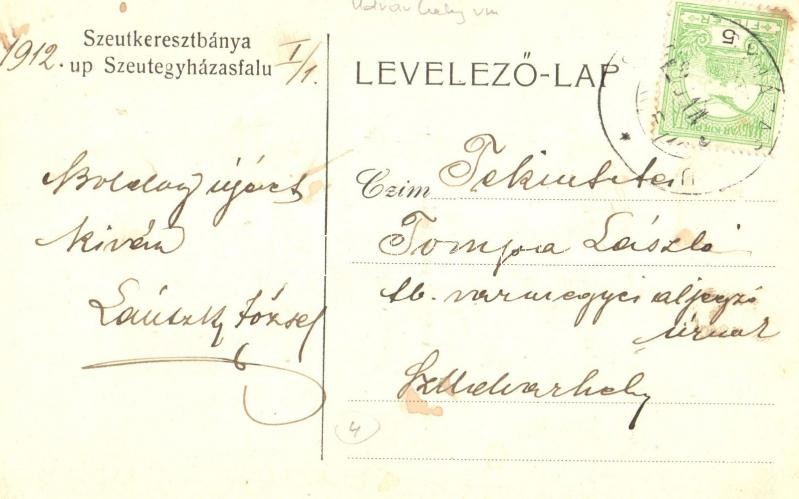 Udvarhely vm
1912. I/1.
Szeutkeresztbánya
up Szeutegyházasfalu
LEVELEZŐ-LAP
5
FILLÉR
MAGYAR KIR. POSTA
Boldog újévet
kíván
József
Czim Tekintetes
Tompa László
tb. vármegyei aljegyző
úrnak
Szkudvarhely
4